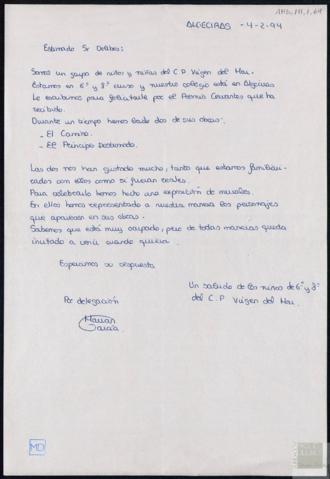 AMD,111,1,69
ALGECIRAS - 4-2-94
Estimado Sr Delibes:
Somos un grupo de niños y niñas del C.P. Virgen del Mar.
Estamos en 6º y 8º curso y nuestro colegio está en Algeciras
Le escribimos para felicitarle por el Premio Cervantes que ha
recibido.
Durante un tiempo hemos leído dos de sus obras:
- El Camino.
- El Príncipe Destronado.
Las dos nos han gustado mucho, tanto que estamos familiari-
zados con ellos como si fueran reales.
Para celebrarlo hemos hecho una exposición de murales.
En ellos hemos representado a nuestra manera los personajes
que aparecen en sus obras.
Sabemos que está muy ocupado, pero de todas maneras queda
invitado a venir cuando quiera.
Esperamos su respuesta
Un saludo de los niños de 6º y 8º
del C.P Virgen del Mar.
Por delegación
García
MD